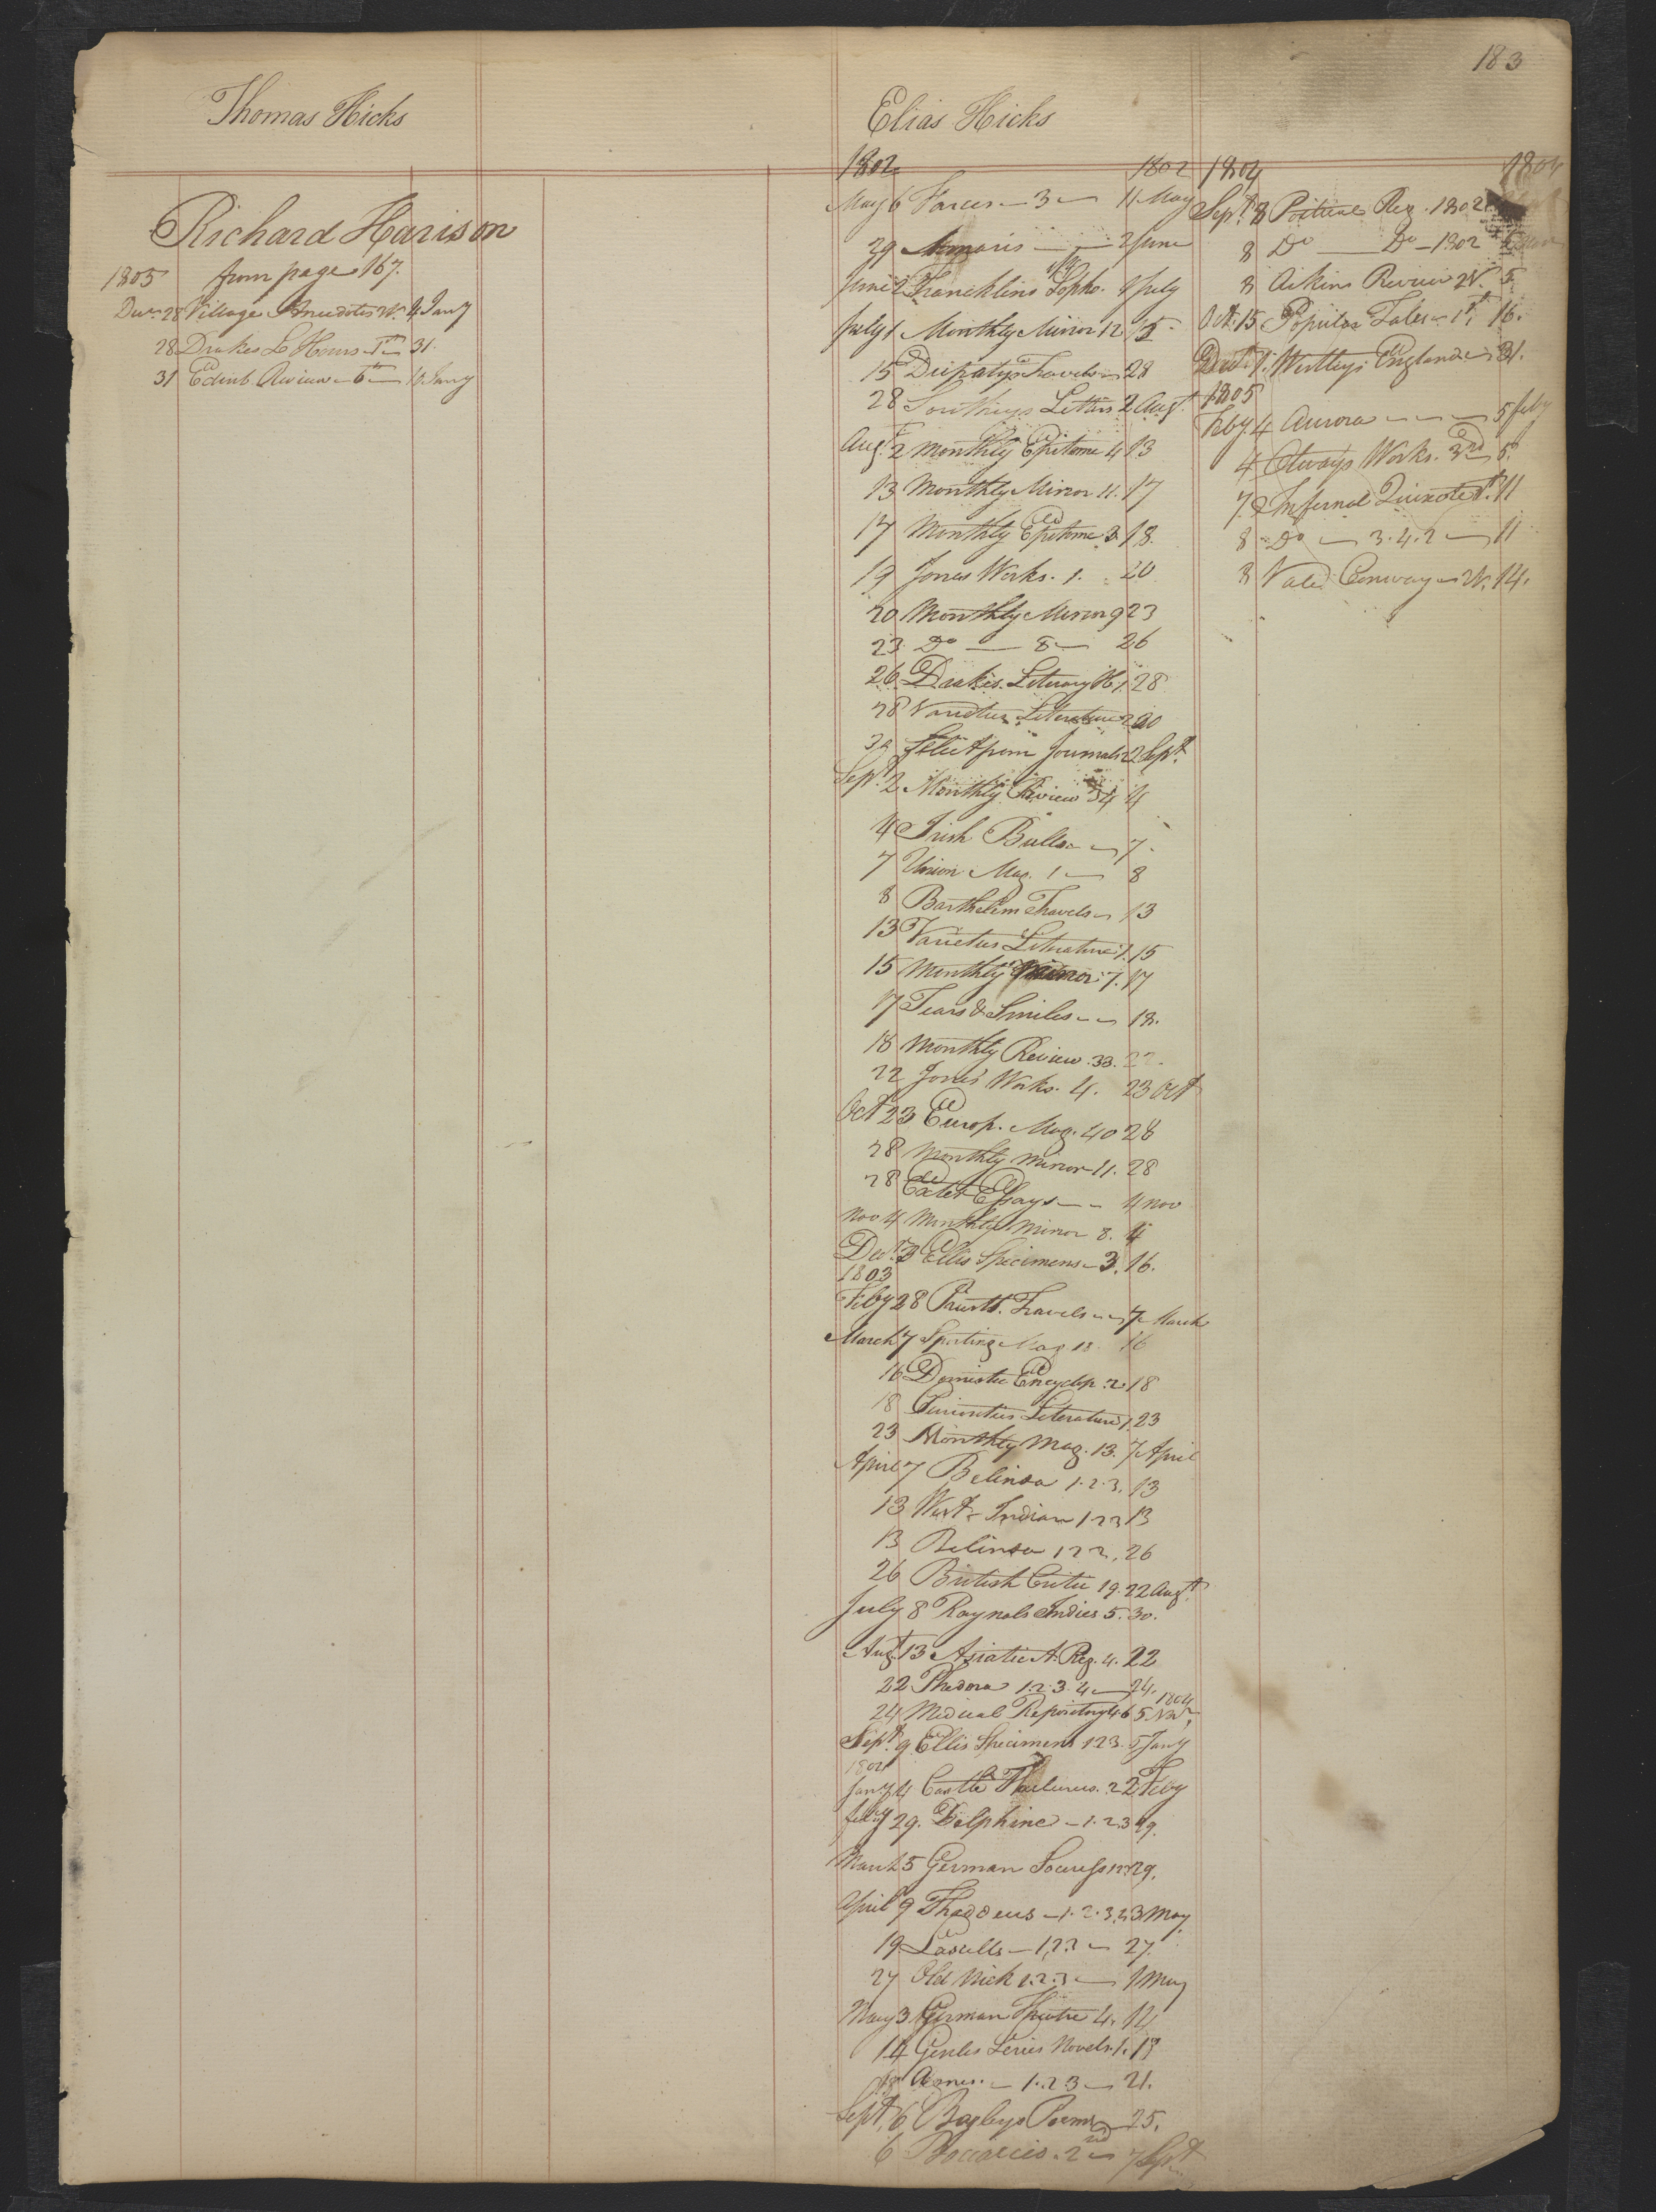 183
Thomas Hicks
Richard Harison
1805 from page 167.
Decr 28 Village Anecdotes W. 4 Jany
28 Drakes L Hours 1st 31.
31 Edinb. Review 6th 10 Jany
Elias Hicks
1802 1802
May 6 Farces 3 11 May
29 2 June
June 2 Francklins Sopho. 1 July
July 1 Monthly Mirror 12 15
15 Dupatys Travels 28
28 Southeys Letters 2 Augt.
Augt 2 Monthly Epitome 4 13
13 Monthly Mirror 11. 17
17 Monthly Epitome 3 18.
19 Jones Works. 1. 20
20 Monthly Mirror 9 23
23 Do 8 26
26 Drakes Literary H 1. 28
28 Varieties Literature 2 30
30 Select from Journals 2 2 Sept.
Sept. 2 Monthly Review 34 4
4 Irish Bulls 7
7 Union Mag. 1 8
8 Barthelim Travels 13
13 Varieties Literature 1. 15
15 Monthly Mirror 7. 17
17 Tears & Smiles 18.
18 Monthly Review. 33. 22.
22 Jones Works. 4. 23 Oct
Oct 23 Europ. Mag. 40 28
28 Monthly Mirror 11. 28
28 Essays 4 Nov
Nov 4 Monthly Mirror 8. 4
Decr. 3 Ellis Specimens 3. 16.
1803
Feby 28 Travels 7 March
March 7 Sporting Mag 18 16
16 Domestic Encyclop. 2 18
18 Curiosities Literature 1. 23
23 Monthly Mag. 13. 7 April
April 7 Belinda 1.2.3. 13
13 West Indian 1 2 3 13
13 Belinda 1 2 2. 26
26 British Critic 19. 22 Augt.
July 8 Raynals Indies 5. 30.
Augt. 13 Asiatic A. Reg. 4. 22
22 Phedora 1.2.3.4 24.
24 Medical Repository 4.6 5 1804
Sept. 9 Ellis Specimens 1 2 3. 5 Jany
1804
Jany 4 Castle 2 2 Feby
Feby 29. Delphine 1.2.3 29.
March 5 German 29.
April 9 Thaddeus 1.2.3.4 3 May
19 Lascells 1,2.3 27.
27 Old Nick 1.2.3 1 May
May 3 German Theatre 4. 14
14 Genlis Series Novels. 1. 18
18 1.2.3 21.
Sept. 6 Bayleys Poems 25.
6 Boccacio. 2nd 7 Sept
1804 1804
Sept. 8 Poetical Reg. 1802
8 Do Do 1802
8 Aikins Review 2V. 5
Oct. 15 Popular Tales 1st. 16.
1. England 31.
1805
Feby. 4 Aurora 5 Feby
4 Otways Works. 3rd 5.
7 Infernal Quixote 1st. 11
8 Do 3.4.2 11
8 Vale Conway 2V. 14.